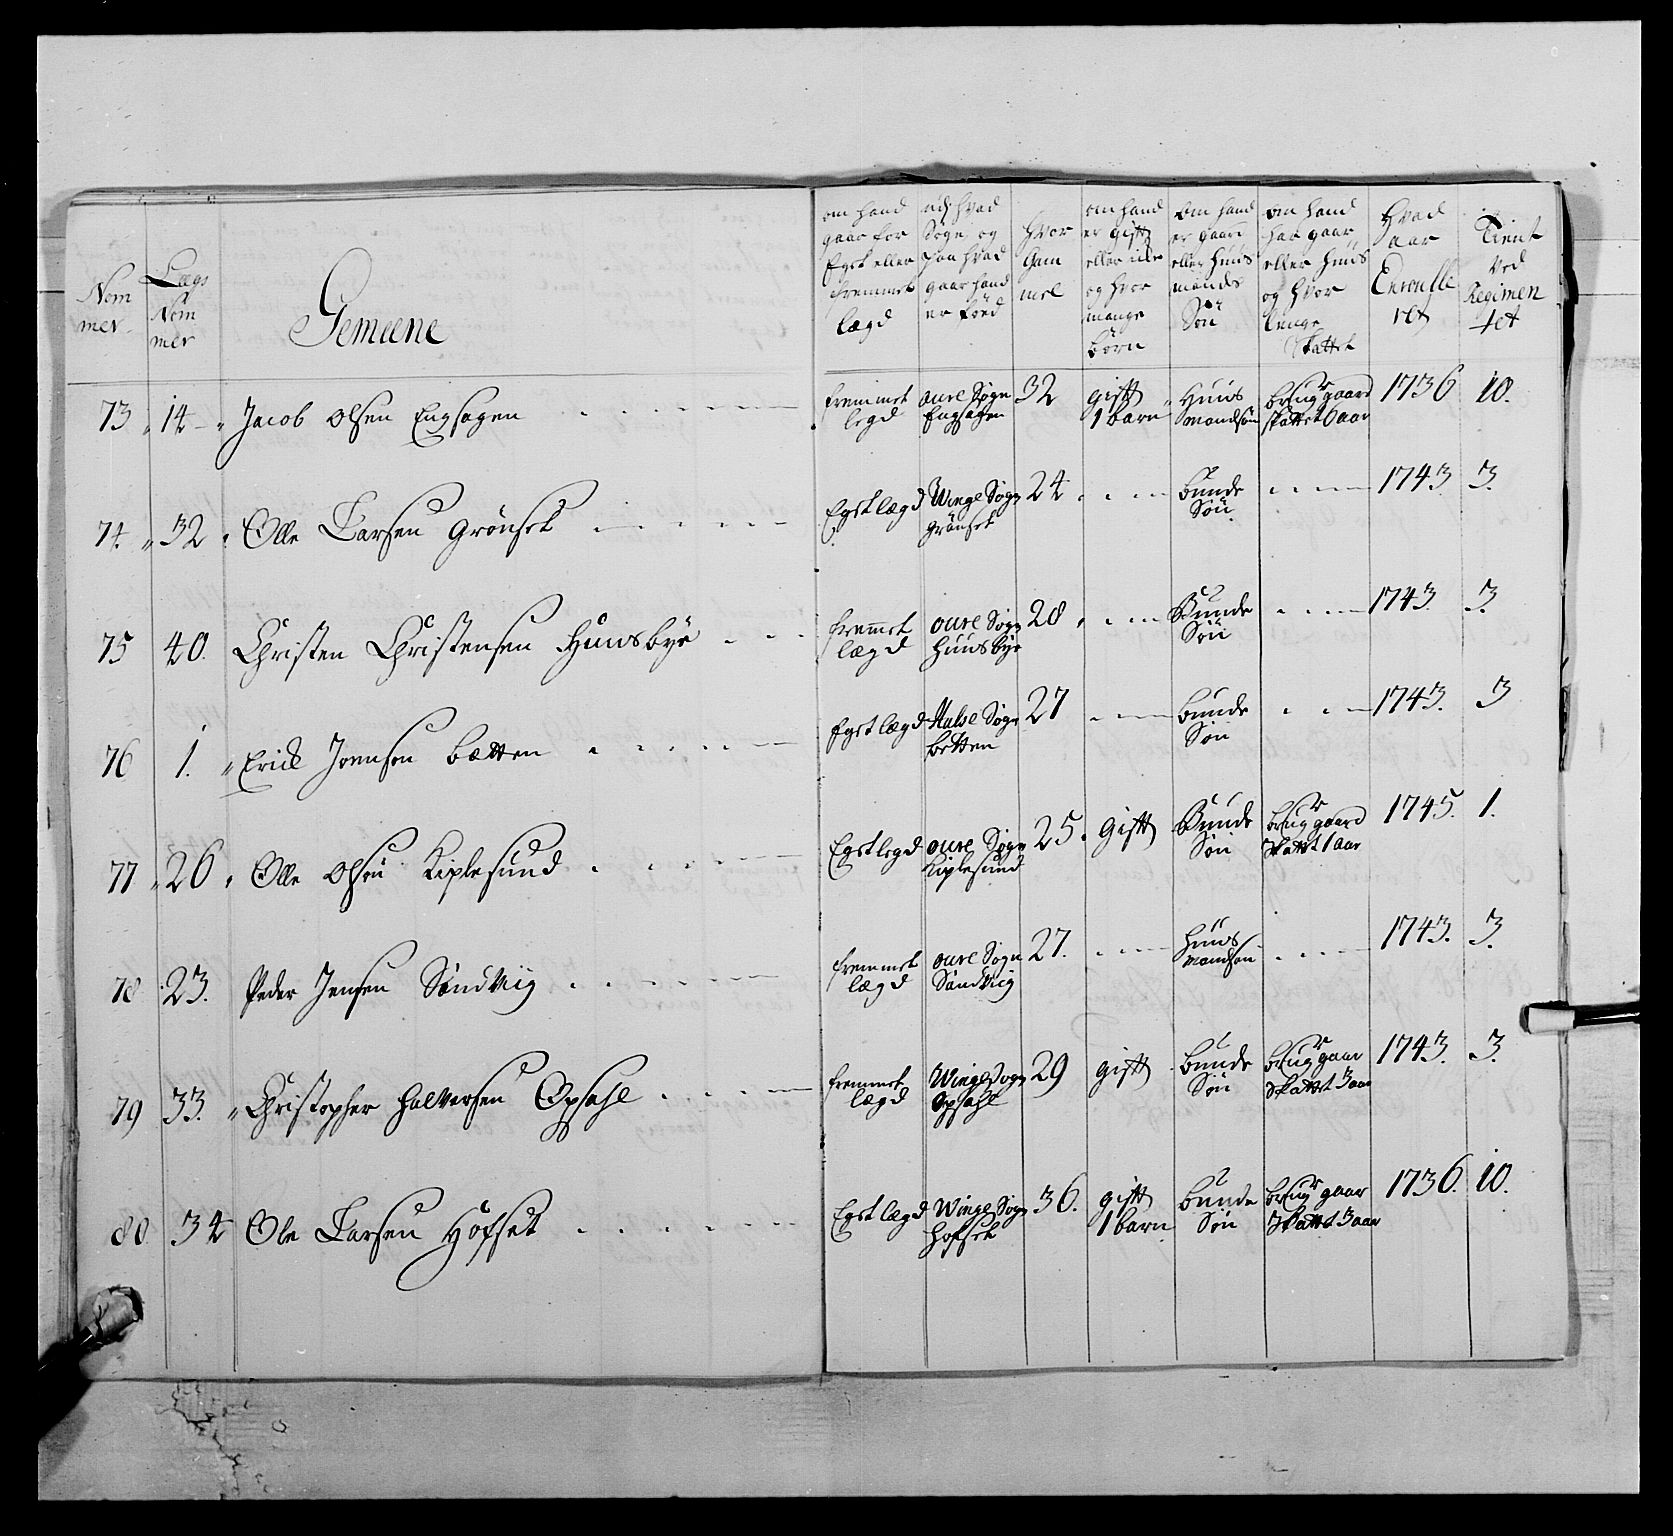 Nom
mer
Lægs
Nom
mer
Gemeene
om hand
gaar for
Egst eller
fremmet
lægd
udj hvad
Sogn og
paa hvad
gaar hand
er föed
Hvor
Gam
mel
om hand
er gift
eller icke
og hvor
mange
börn
Om hand
er gaars
eller Huus
mands
Sön
om hand
har gaar
eller Huus
og hvor
lenge
Skattet
Hvad
aar
Enroulle
ret
Tient
Ved
Regimen
tet
73 14 Jacob Olsen Engsagen fremmet lægd oure Sogn Engsagen 32 gift 1 barn Huus mandsön brug gaard skattet 6 aar 1736 10.
74. 32 Olle Larsen Grönset Egst lægd Winge Sogn Grönset 24 bunde Sön 1743 3.
75 40. Christen Christensen Huusbye fremmet lægd oure Sogn Huusbye 28 Bunde Sön 1743. 3.
76 1. Erick Joensen bætten Egst lægd Halse Sogn betten 27 bunde Sön 1743. 3
77 26 Olle Olsön Kiplesund Egst lægd oure Sogn Kiplesund 25. Gift Bunde Sön brug gaard Skattet 1 aar 1745. 1.
78 23. Peder Jensen Sandviig fremmet lægd oure Sogn Sandviig 27. Huus mandsön 1743. 3.
79 33. Christopher Halversen Opsahl fremmet lægd Winge Sogn Opsahl 29 gift bunde Sön brug gaar Skattet 3 aar 1743. 3.
80 34 Ole Larsen Hofset Egst lægd Winge Sogn Hofset 36. gift 1 barn bunde Sön brug gaar Skattet 3 aar 1736. 10.